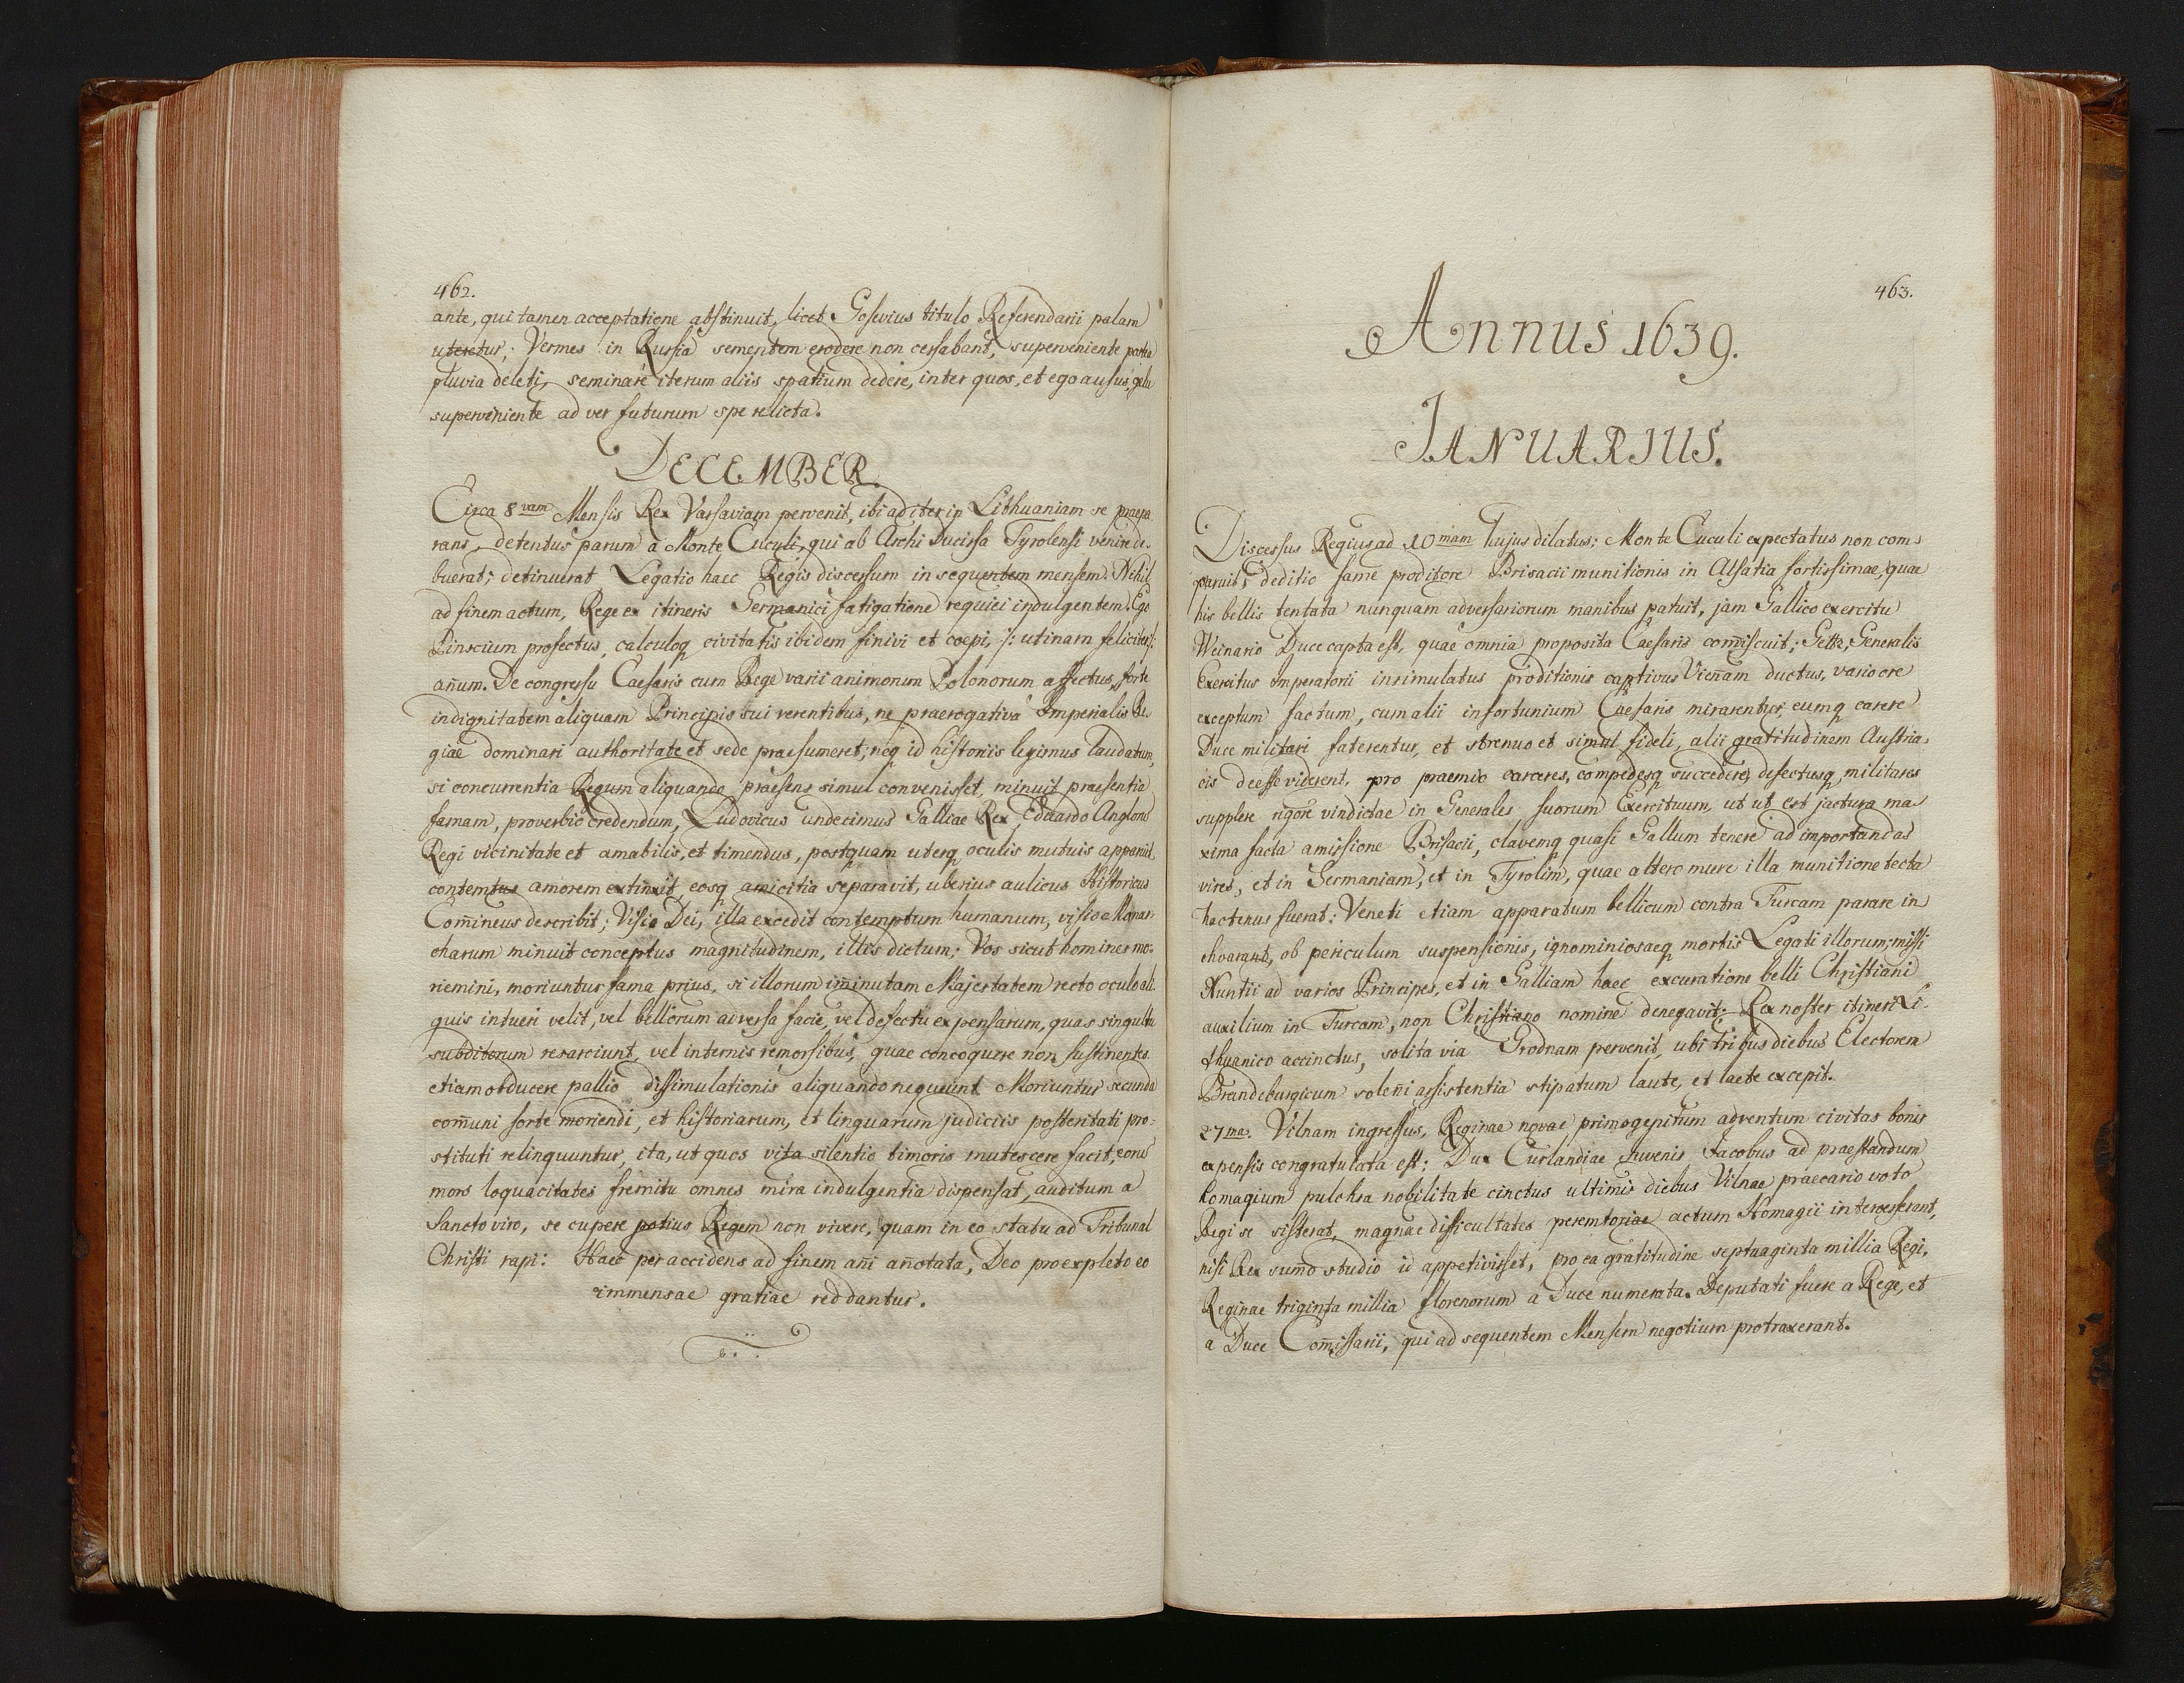 462.
ante, qui tamen acceptatione abstinuit, licet Gosevius titulo Referendarii palam
uteretur; Vermes in Russia sementem erodere non cessabant, superveniente postea
pluvia deleti, seminare iterum aliis spatium dedere, inter quos, et ego ausus, gelu
superviniente ad ver futurum spe relicta.
DECEMBER.
Circa 8vam Mensis Rex Varsaviam pervenit, ibi ad iter in Lithuaniam se praepa
rans, detentus parum à Monte Cuculi, qui ab Archi Ducissa Tyrolensi venire de-
buerat; detinuerat Legatio haec Regis discessum in sequentem mensem. Nihil
ad finem actum, Rege ex itineris Germanici fatigatione requiei indulgentem. Ego
Pinscium profectus, calculoq civitatis ibidem finivi et coepi, /: utinam feliciter :/
an̄um. De congressu Caesaris cum Rege varii animorum Polonorum affectus, forte
indignitatem aliquam Principis sui verentibus, ne praerogativa Imperialis Re
giae dominari authoritate et sede praesumeret; neq id historiis legimus laudatum,
si concurrentia Regum aliquando praesens simul convenisset, minuit praesentia
famam, proverbio credendum, Ludovicus undecimus Galliae Rex, Eduardo Anglorū
Regi vicinitate et amabilis, et timendus, postquam uterq oculis mutuis apparuit
contemtus amorem extinxit, eosq amicitia separavit, uberius aulicus Historicus
Com̄ineus describit; Visio Dei, illa excedit contemptum humanum, visio Monar
charum minuit conceptus magnitudinem, illis dictum; Vos sicut homines mo-
riemini, moriuntur fama prius, si illorum im̄inutam Majestatem recto oculo ali
quis intueri velit, vel bellorum adversa facie, vel defectu expensarum, quas singultu
subditorum resarciunt, vel internis remorsibus, quae concoquere non sustinentes
etiam obducere pallio dissimulationis aliquando nequeunt. Moriuntur secunda
com̄uni sorte moriendi, et historiarum, et linguarum judiciis posteritati pro-
stituti relinquuntur, ita, ut quos vita silentio timoris mutescere facit, eorū
mors loquacitates fremitu omnes mira indulgentia dispensat, auditum a
Sancto viro, se cupere potius Regem non vivere, quam in eo statu ad Tribunal
Christi rapi: Haec per accidens ad finem an̄i an̄otata, Deo pro expleto eo
immensae gratiae reddantur.
463.
Annus 1639.
JANUARIUS.
Discessus Regius ad 10mam hujus dilatus; Monte Cuculi expectatus non com-
paruit, deditio fame proditore Brisacii munitionis in Alsatia fortissimae, quae
his bellis tentata nunquam adversariorum manibus patuit, jam Gallico exercitu
Weinario Duce capta est, quae omnia proposita Caesaris com̄iscuit; Gettz, Generalis
Exercitus Imperatorii insimulatus proditionis captivus Vien̄am ductus, vario ore
exceptum factum, cum alii infortunium Caesaris mirarentur, eumq carere
Duce militari faterentur, et strenuo et simul fideli, alii gratitudinem Austria-
cis deesse viderent, pro praemio carceres, compedesq succedere, defectusq militares
supplere rigore vindictae in Generales suorum Exercituum, ut ut est jactura ma
xima facta amissione Brisacii, clavemq quasi Gallum tenere ad importandas
vires, et in Germaniam, et in Tyrolim, quae altero mure illa munitione tecta
hactenus fuerat: Veneti etiam apparatum bellicum contra Turcam parare in
choarant, ob periculum suspensionis, ignominiosaeq mortis Legati illorum; missi
Nuntii ad varios Principes, et in Galliam haec excuratione belli Christiani
auxilium in Turcam, non Christiano nomine denegavit: Rex noster itineri Li-
thuanico accinctus, solita via Grodnam pervenit, ubi tribus diebus Electorem
Brandeburgicum solen̄i assistentia stipatum laute, et laete excepit.
27ma. Vilnam ingressus, Reginae novae primogenitum adventum civitas bonis
expensis congratulata est: Dux Curlandiae Juvenis Jacobus ad praestandum
homagium pulchra nobilitate cinctus ultimis diebus Vilnae praecario voto
Regi se sisterat, magnae difficultates peremtoriae actum Homagii intercesserant,
nisi Rex sum̄o studio id appetivisset, pro ea gratitudine septuaginta millia Regi,
Reginae triginta millia florenorum a Duce numerata. Deputati fuere a Rege, et
a Duce Com̄issarii, qui ad sequentem Mensem negotium protraxerant.